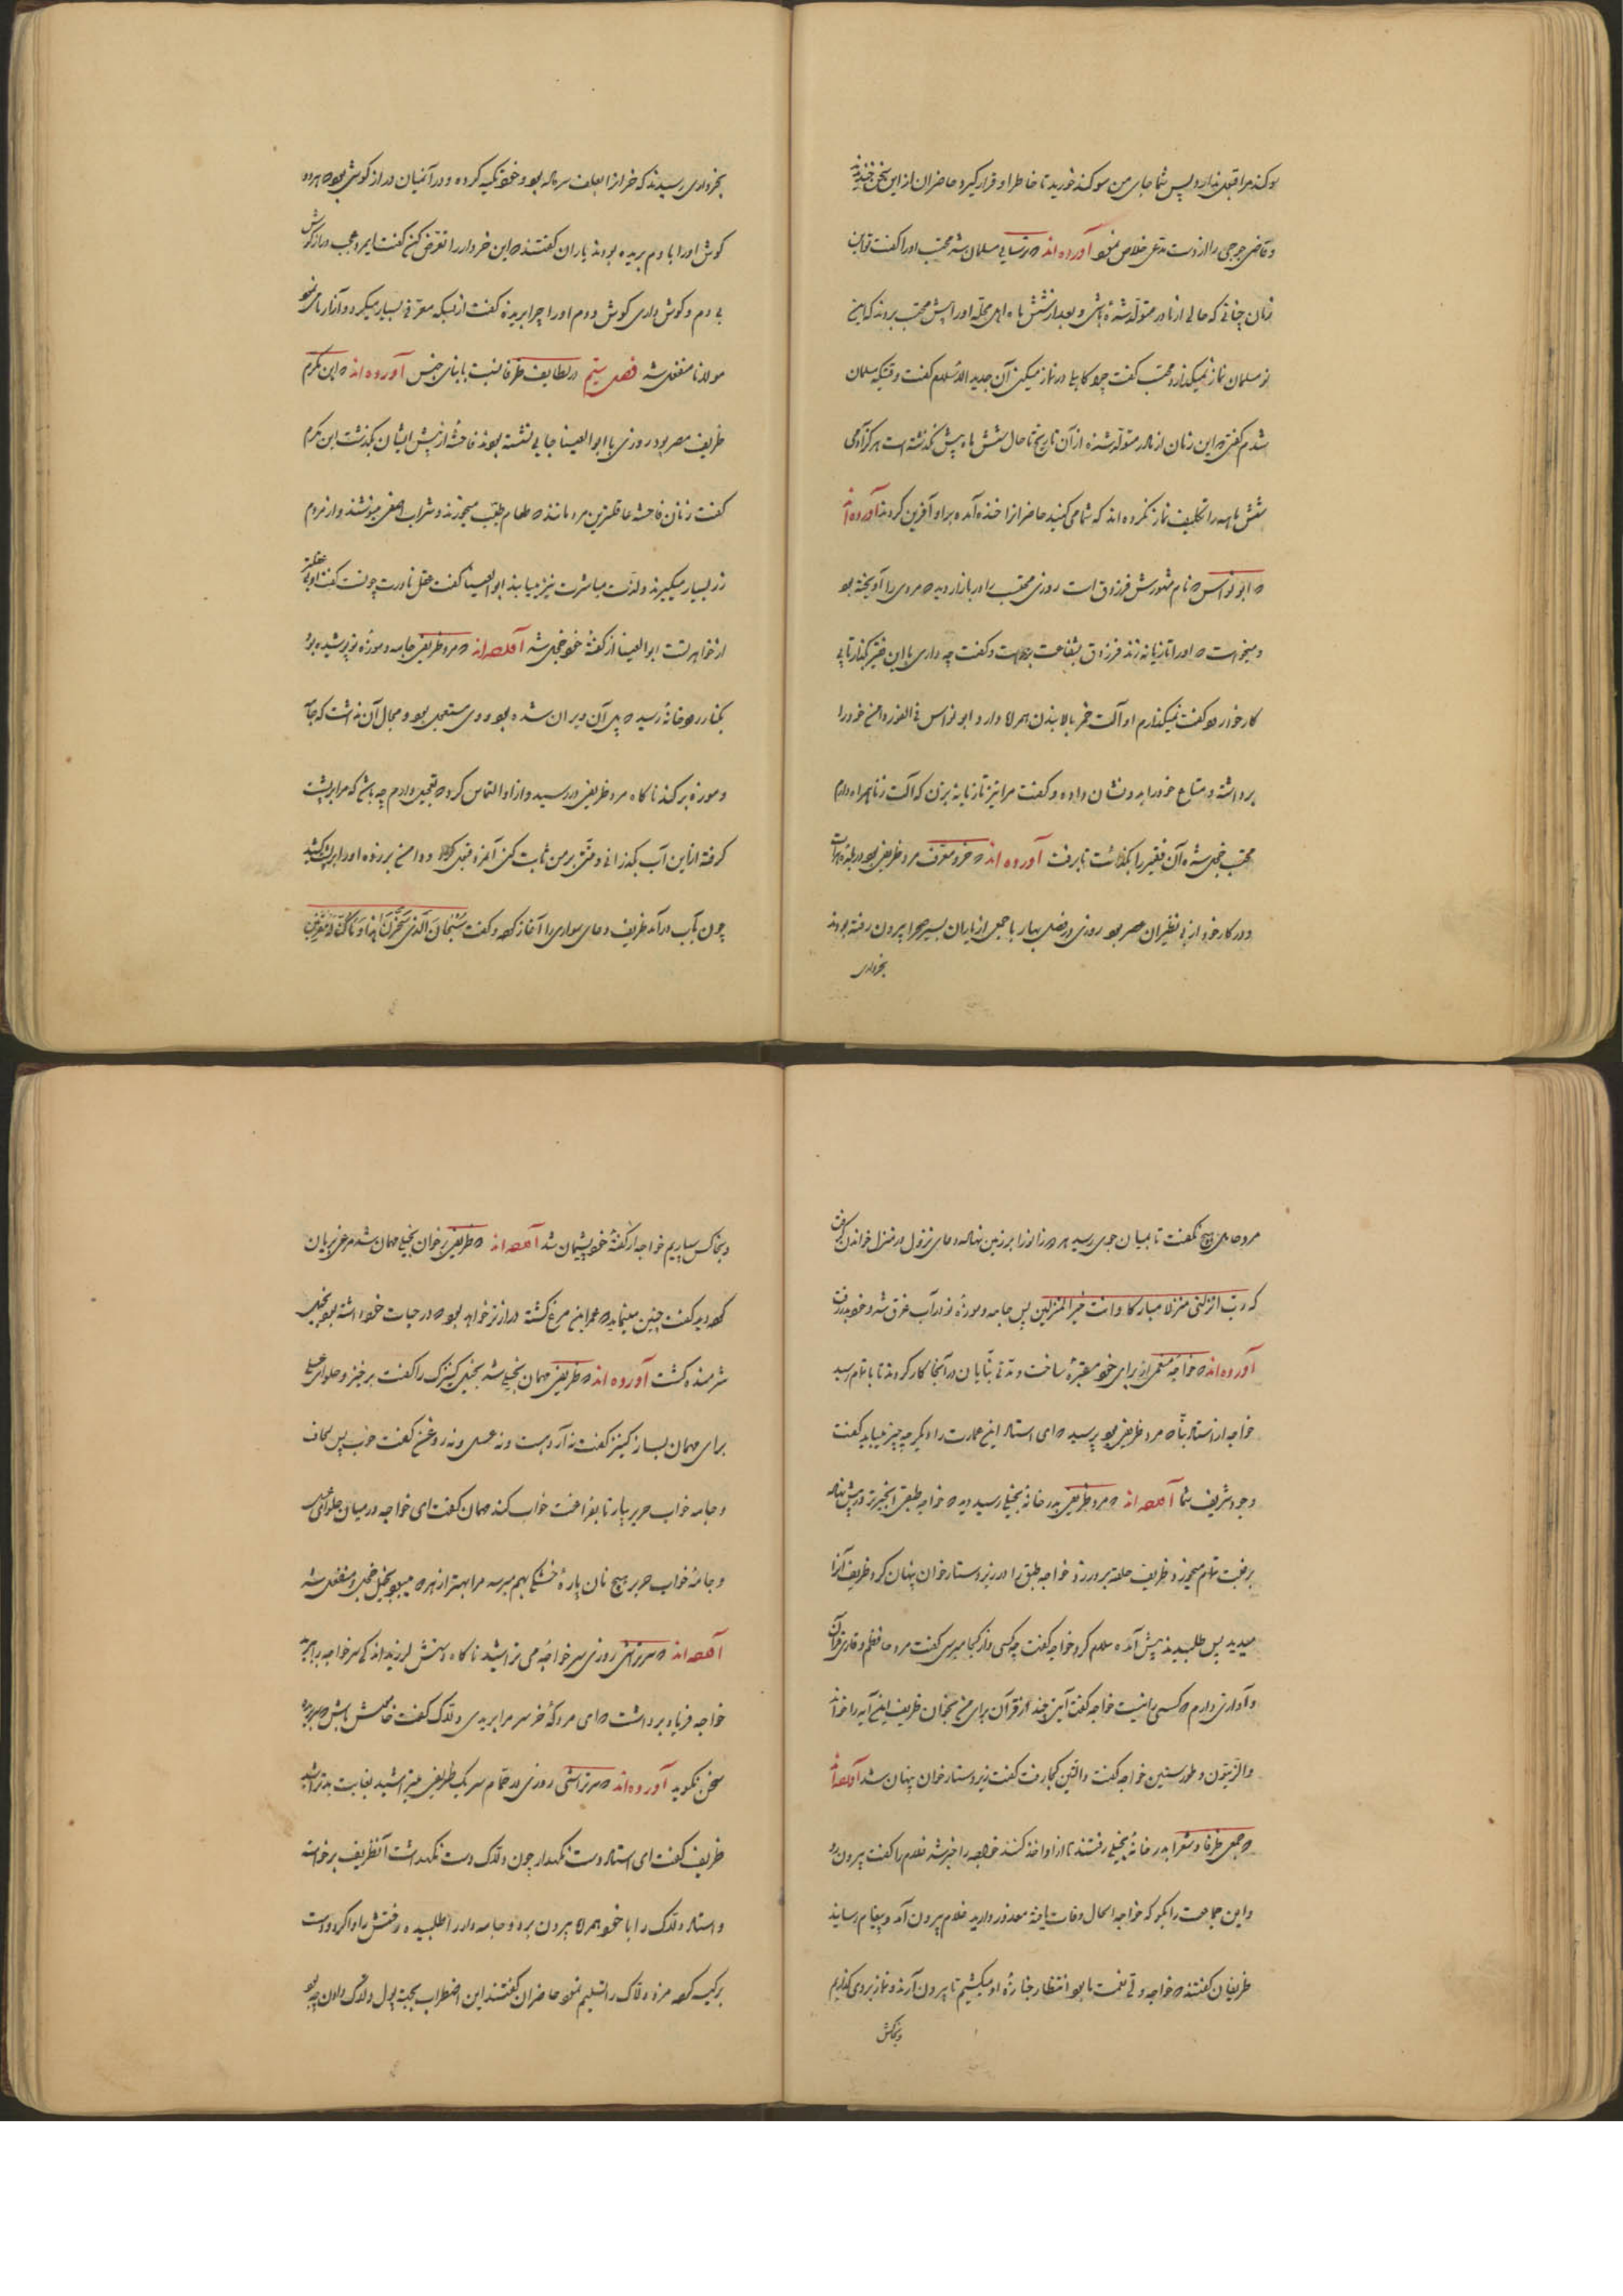 سوکند مرا قبول ندارد پس شما جای من سوکند خورید تا خاطر او قرار گیرد حاضران از این سخن خندیدند
و قاضی جوحی را از دست مدعی خلاص نمود آورده‌اند که ترسایی مسلمان شد محتسب او را گفت تو این
زمان چنانی که حالی از مادر متولد شده باشی و بعد از شش ماه اهل محله او را پیش محتسب بردند که این
نو مسلمان نماز نمیگذارد محتسب گفت چرا کاهلی در نماز میکنی آن جدید الاسلام گفت وقتیکه مسلمان
شدم گفتی که این زمان از مادر متولد شده از آن تاریخ تا حال شش ماه بیش نگذشته است هرگز آدمی
شش ماهه را تکلیف نماز نکرده‌اند که شما می‌کنید حاضرانرا خنده آمده بر او آفرین کردند آورده‌اند
که ابو نواس که نام مشهورش فرزدق است روزی محتسب را در بازار دید که مردی را آویخته بود
و میخواست که او را تازیانه زند فرزدق بشفاعت برخاست و گفت چه داری با این فقیر بگذار تا پی
کار خود رود گفت نمیگذارم او آلت خمر بالا بندن همراه دارد ابو نواس فی الفور دامن خود را
برداشته و متاع خود را بدو نشان داده و گفت مرا نیز تازیانه بزن که آلت زنا همراه دارم
محتسب خجل شده آن فقیر را بگذاشت تا برفت آورده‌اند که خرد معرف مرد ظریفی بود در بلده هرات
و در کار خود از بی نظیران عصر بود روزی در فصل بهار با جمعی از یاران بسیر صحرا بیرون رفته بودند
بخرداری
بخرداری رسیدند که خرانرا بعلف سر داده بود و خود تکیه کرده و در آن میان دراز گوشی بود که هر دو
گوش او را با دم بریده بودند یاران گفتند که این خردار را تعرض کن گفت ای مرد عجب دراز گوش
بی دم و گوش داری گوش و دم او را چرا بریدند گفت از بسکه معرفی بسیار میکرد و آزار ما می‌نمود
مولانا منفعل شد فصل ستم در لطایف ظرفا نسبت بابنای جنس آورده‌اند که ابن مکرم
ظریف مصر بود روزی با ابو العینا جایی نشسته بودند فاحشه از پیش ایشان بگذشت ابن مکرم
گفت زنان فاحشه عاقلترین مردمانند که طعام طیب میخورند و شراب صافی مینوشند و از مردم
زر بسیار میگیرند و لذت مباشرت نیز مییابند ابو العینا گفت عقل مادرت چونست گفت او بی عقلتر
از خواهر تست ابو العینا از گفته خود خجل شد آورده‌اند که مرد ظریفی جامه و موزه نو پوشیده بود
بکنار رودخانه رسید که پل آن ویران شده بود و وی مستعجل بود و مجال آن نداشت که جامه
و موزه برکند ناگاه مرد ظریفی در رسید و از او التماس کرد که تعجیل دارم چه باشد که مرا بر پشت
گرفته از این آب بگذرانی و منتی بر من ثابت کنی آنمرد قبول کرد و دامن بر زده او را بر پشت کشید
چون بآب درآمد ظریف دعای سواری را آغاز کرد و گفت سُبْحَانَ الَّذِی سَخَّرَ لَنَا هٰذَا وَمَا کُنَّا لَهُ مُقْرِنِینَ
مرد حامل هیچ نگفت تا بمیان جوی رسید هر دو زانو را بر زمین نهاد و دعای نزول در منزل خواندن گرفت
که رب انزلنی منزلا مبارکا وانت خیر المنزلین پس جامه و موزه نو در آب غرق شد و خود بدر رفت
آورده‌اند که خواجه متمولی از برای خود مقبره ساخت و مدتی بنایان در آنجا کار کردند تا باتمام رسید
خواجه از استاد بنا که مرد ظریفی بود پرسید که ای استاد این عمارت را دیگر چه چیز میباید گفت
وجود شریف شما آورده‌اند که مرد ظریفی بدر خانه بخیلی رسید دید که خواجه طبقی انجیر تر در پیش نهاده
برغبت تمام میخورد ظریف حلقه بر در زد خواجه طبق را در زیر دستار خوان پنهان کرد ظریف آنرا
میدید پس طلبیدند پیش آمده سلام کرد خواجه گفت چه کسی و از کجا میرسی گفت مرد حافظم و قاری قرآن
و آوازی دارم که کسی را نیست خواجه گفت آیتی چند از قرآن برای من بخوان ظریف این آیه را خواند
والزیتون و طور سینین خواجه گفت والتین کجا رفت گفت زیر دستار خوان پنهان شد آورده‌اند
که جمعی ظرفا و شعرا بدر خانه بخیلی رفتند تا از او اخذ کنند خواجه را خبر شد غلام را گفت بیرون رو
و این جماعت را بگو که خواجه الحال وفات یافته معذور دارید غلام بیرون آمد و پیغام رسانید
ظریفان گفتند که خواجه ولی نعمت ما بود انتظار جنازه او میکشیم تا بیرون آرند و نماز بر وی گذاریم
و بخاکش
و بخاکش سپاریم خواجه از گفته خود پشیمان شد آورده‌اند که ظریفی بر خوان بخیلی مهمان شد مرغی بریان
کرده دید گفت چنین مینماید که عمر این مرغ کشته درازتر خواهد بود که در حیات خود داشته بود بخیل
شرمنده گشت آورده‌اند که ظریفی مهمان بخیلی شد بخیل کنیزک را گفت برخیز و حلوای عسلی
برای مهمان بساز کنیز گفت نه آرد هست و نه عسل و نه روغن گفت خوب پس لحاف
و جامه خواب حریر بیار تا بفراغت خواب کند مهمان گفت ای خواجه در میان حلوای عسلی
و جامه خواب حریر هیچ نان پاره خشکی بهم میرسد مرا بهتر از هر دو میبود بخیل خجل و منفعل شد
آورده‌اند که سر تراشی روزی سر خواجه می تراشید ناگاه دستش لرزید اندکی سر خواجه ببرید
خواجه فریاد برداشت که ای مردکه خر سر مرا بریدی دلاک گفت خامش باش که سر بریده
سخن نگوید آورده‌اند که سر تراشی روزی در حمام سر یک ظریفی میتراشید بغایت بد تراشید
ظریف گفت ای استاد دست نگهدار چون دلاک دست نگهداشت آن ظریف برخاسته
و استاد دلاک را با خود همراه بیرون برد و جامه‌دار را طلبیده رختش را وا کرد و دست
بر کیسه کرد مزد دلاک را تسلیم نمود حاضران گفتند این اضطراب بجهة پول دلاک دادن چه بود